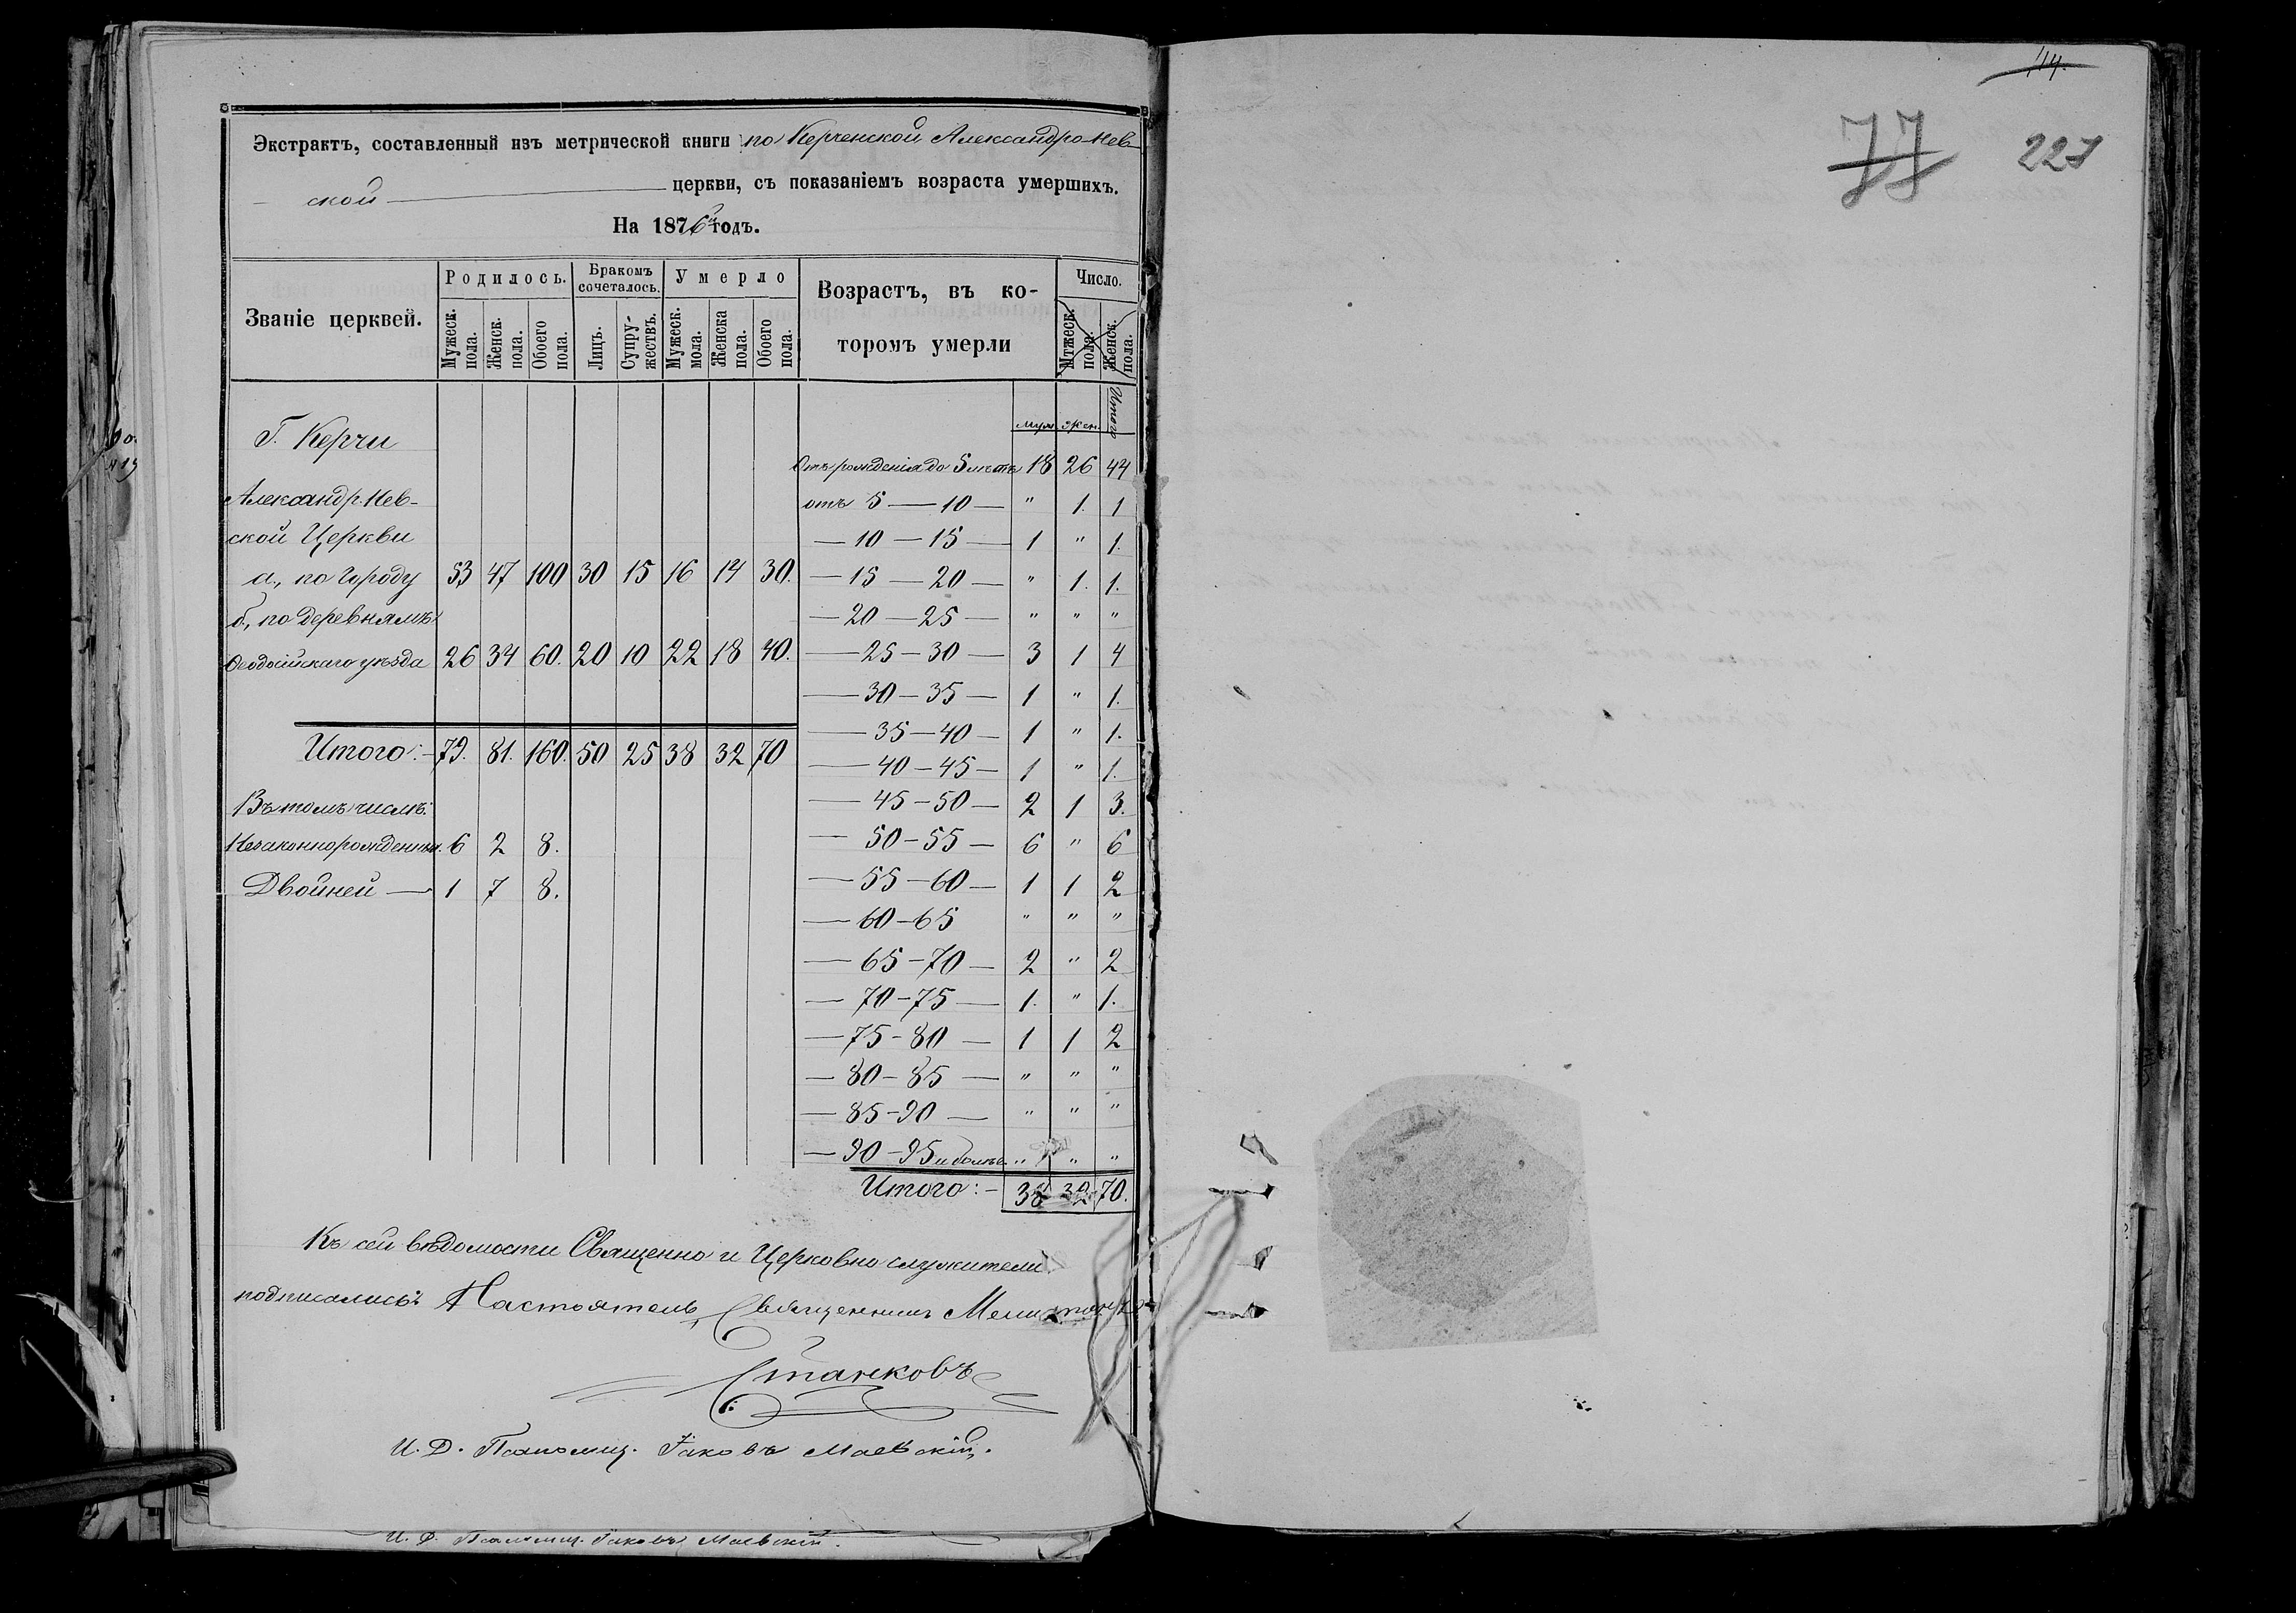 Экстрактъ, составленный изъ метрической книги по Керченской Александро-Нев-
ской церкви, съ показаніемъ возраста умершихъ.
На 1876й годъ.
Званіе церквей.
Родилось.
Бракомъ сочеталось.
Умерло
Возрастъ, въ ко-
торомъ умерли
Число.
Мужеск. пола.
Женск. пола.
Обоего пола.
Лицъ.
Супру-жествъ.
Мужеск. мола.
Женска пола.
Обоего пола.
Мтжеск. пола.
Женск. пола.
муж. жен. Итого
Г. Керчи
Александр. Нев-
ской Церкви
а., по городу 53 47 100 30 15 16 14 30.
б., по деревнямъ
Ѳеодосійскаго уѣзда 26 34 60. 20 10 22 18 40.
Итого:- 79. 81. 160. 50 25 38 32 70
Въ томъ числѣ:
Незаконнорожденныхъ. 6 2 8.
Двойней — 1 7 8.
Отъ рожденія до 5 лѣтъ 18 26 44
отъ 5 — 10 — " 1. 1
— 10 — 15 — 1 " 1.
— 15 — 20 — " 1. 1.
— 20 — 25 — " " "
— 25 — 30 — 3 1 4
— 30 — 35 — 1 " 1.
— 35 — 40 — 1 " 1.
— 40 — 45 — 1 " 1.
— 45 — 50 — 2 1 3.
— 50 — 55 — 6 " 6
— 55 — 60 — 1 1 2
— 60 — 65 " " "
— 65 — 70 — 2 " 2
— 70 — 75 — 1. " 1.
— 75 — 80 — 1 1 2
— 80 — 85 — " " "
— 85 — 90 — " " "
— 90 — 95 и болѣе " " "
Итого:- 38 32 70.
Къ сей вѣдомости Священно и Церковно служители
подписались: Настоятель, Священникъ
Станковъ
И. Д. Псаломщ. Іаковъ Маевскій.
И. Д. Псаломщ. Іаковъ Маевскій.
114.
77
227